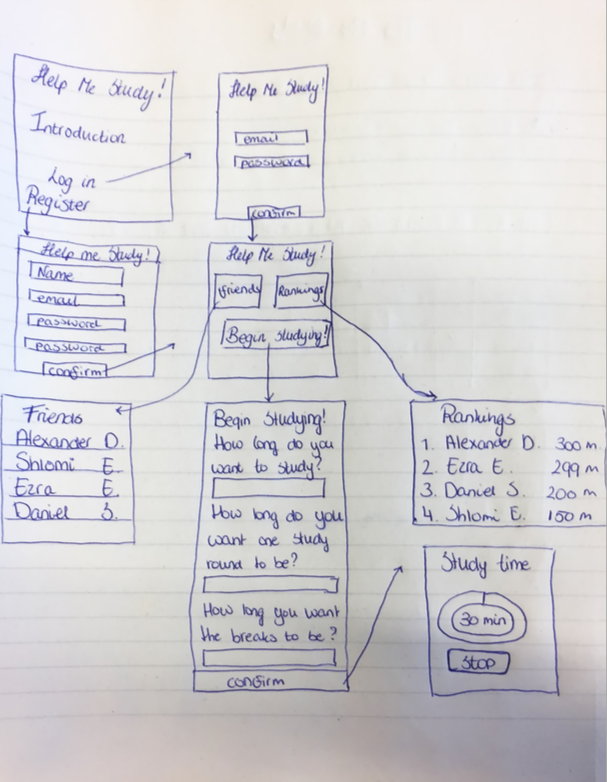 Help Me Study!
Introduction
Log in
Register
Help Me Study!
email
password
confirm
Help me Study!
Name
email
password
password
confirm
Help Me Study!
Friends
Rankings
Begin studying!
Friends
Alexander D.
Shlomi E.
Ezra E.
Daniel S.
Begin Studying!
How long do you
want to study?
How long do you
want one study
round to be?
How long you want
the breaks to be?
confirm
Rankings
1. Alexander D. 300 m
2. Ezra E. 299 m
3. Daniel S. 200 m
4. Shlomi E. 150 m
Study time
30 min
Stop